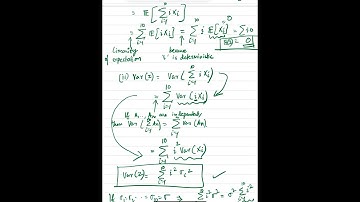 = E[Σ_{i=1}^{10} i X_i]
= Σ_{i=1}^{10} E[i X_i] = Σ_{i=1}^{10} i E[X_i] = Σ i 0
E[Z] = 0
Linearity of expectation
because 'i' is deterministic
(ii) Var(Z) = Var(Σ_{i=1}^{10} i X_i)
= Σ_{i=1}^{10} Var(i X_i)
If A_1, ... A_n are independent,
then Var(Σ_{i=1} A_i) = Σ_{i=1} Var(A_n)
= Σ_{i=1}^{10} i² Var(X_i)
Var(Z) = Σ_{i=1}^{10} i² σ_i²
If σ_1 = ... σ_10 = σ ⇒ Σ i² σ² = σ² Σ i²